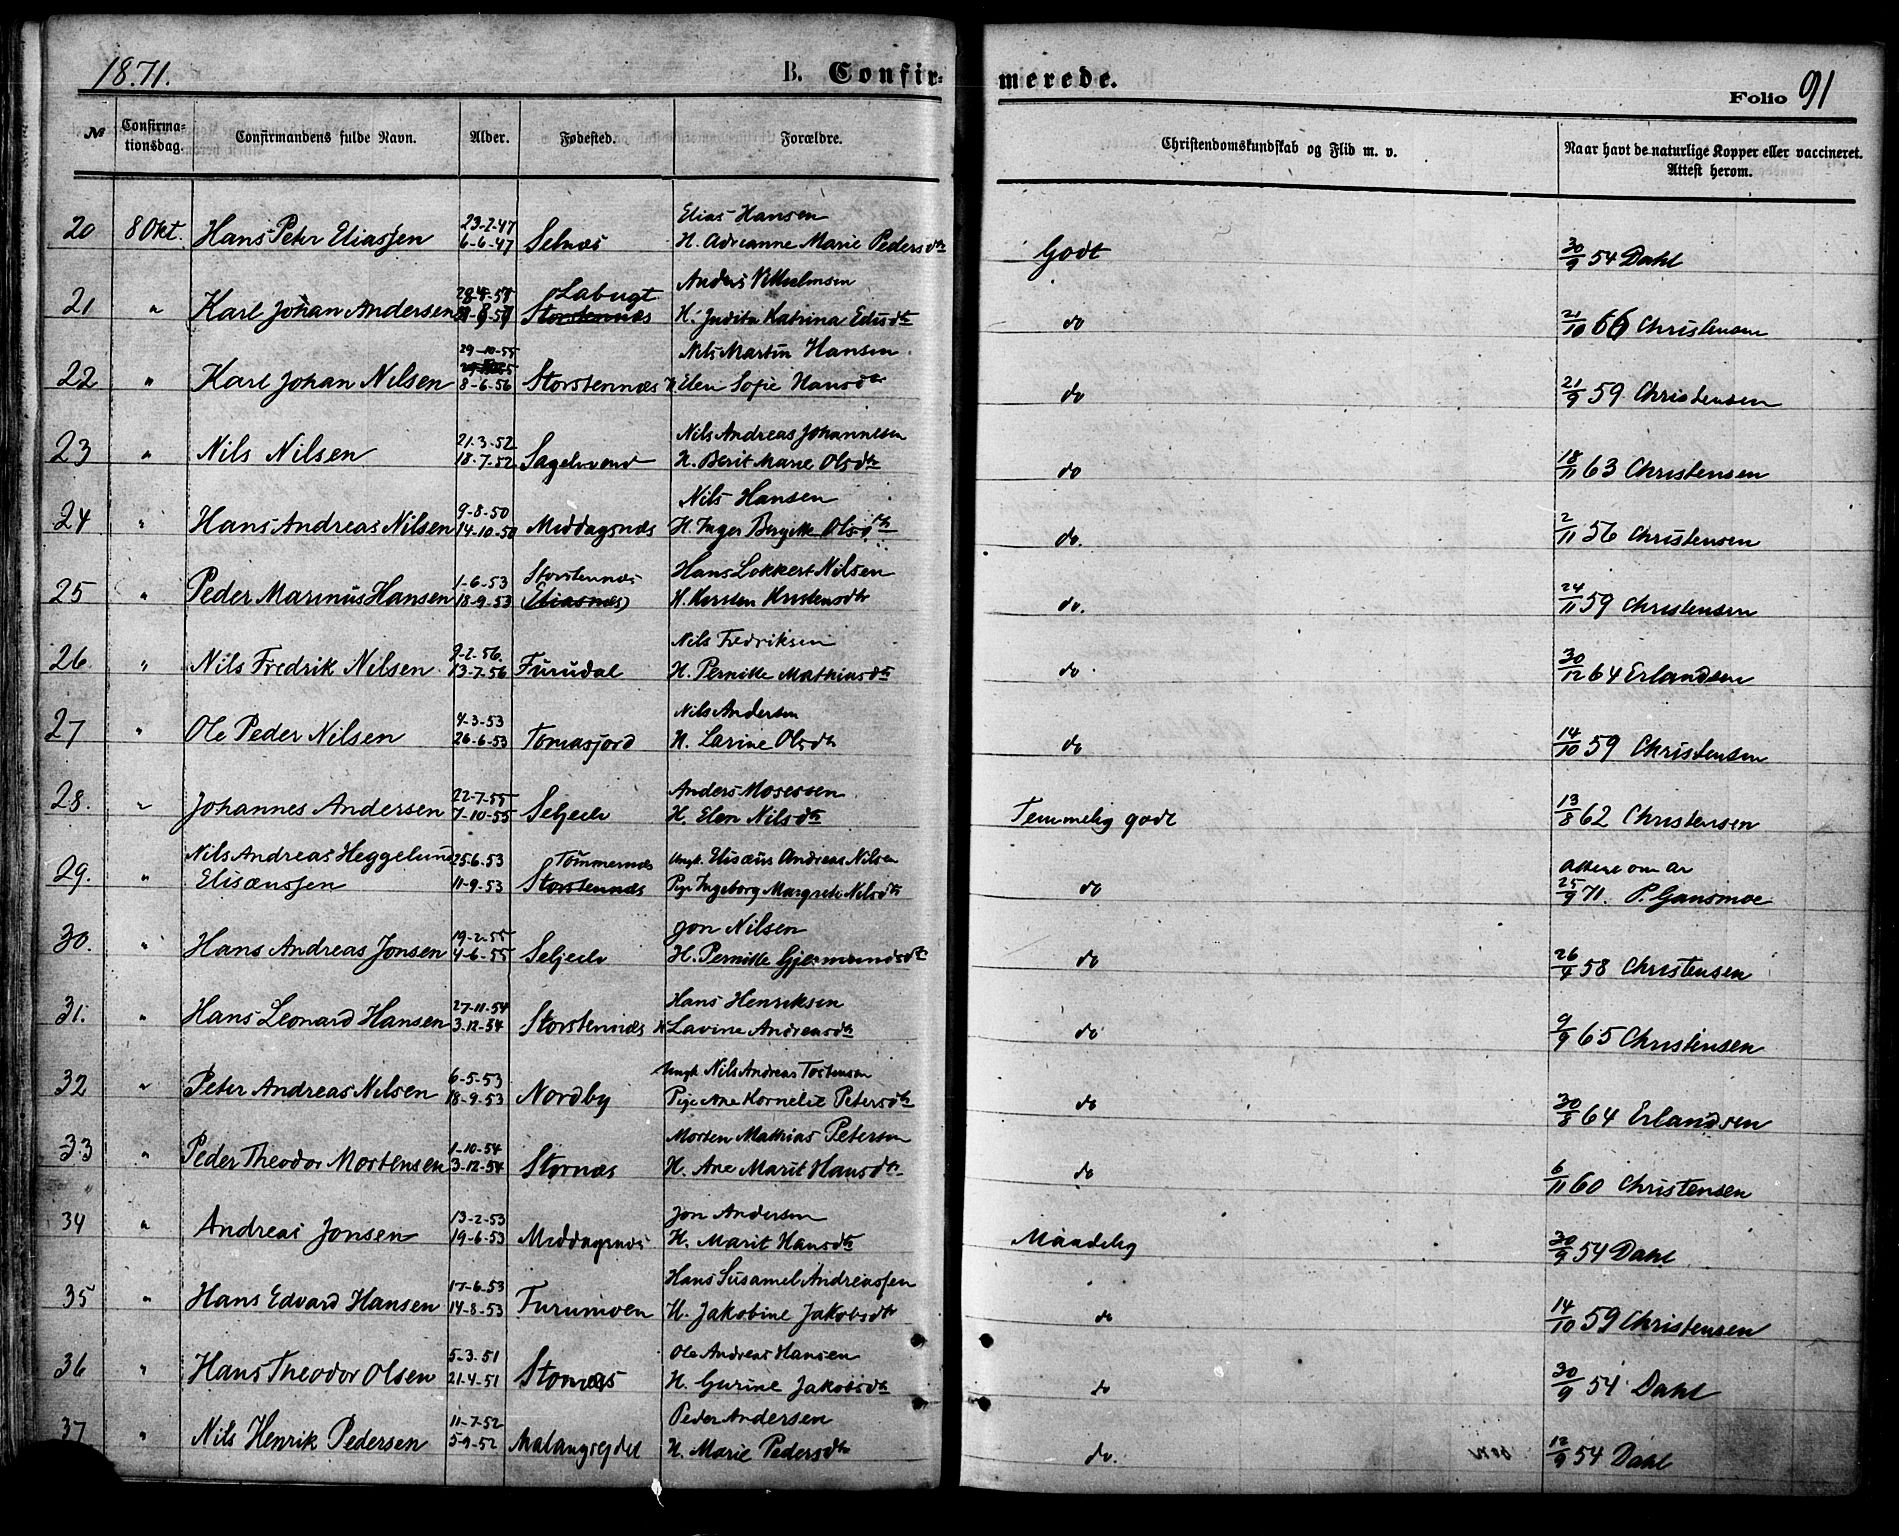 1871.
B. Confir-
merede.
Folio 91
№
Confirma-
tionsdag.
Confirmandens fulde Navn.
Alder.
Fødested.
Forældre.
Christendomskundskab og Flid m. v.
Naar havt de naturlige Kopper eller vaccineret.
Attest herom.
23-2-47 Elias Hansen
20 8 Okt. Hans Peter Eliassen 6-6-47 Selnæs H. Adrianne Marie Pedersdtr Godt 30/9 54 Dahl
Labugt Anders Vilhelmsen
21 " Karl Johan Andersen Storstennæs H. Judita Katrina do 21/10 66 Christensen
29-10-55 Nils Martin Hansen
22 " Karl Johan Nilsen 8-6-56 Storstennæs H. Elen Sofie Hansdtr do 21/9 59 Christensen
21-3-52 Nils Andreas Johannesen
23 " Nils Nilsen 18-7-52 Sagelvvand H. Berit Marie Olsdtr do 18/11 63 Christensen
9-8-50 Nils Hansen
24 " Hans Andreas Nilsen 14-10-50 Middagsnæs H. Inger Bergitte Olsdtr do. 2/11 56 Christensen
1-6-53 Storstennæs Hans Lokkert Nilsen
25 " Peder Marinus Hansen 18-9-53 (Eliasnæs) H. Kersten Kristensdtr do. 24/11 59 Christensen
9-2-56. Nils Fredriksen
26 " Nils Fredrik Nilsen 13-7-56 Furudal H. Pernille Mathiasdtr do 30/12 64 Erlandsen
4-3-53 Nils Andersen
27 " Ole Peder Nilsen 26-6-53 Tomasjord H. Larine Olsdtr do 14/10 59 Christensen
22-7-55 Anders Mosessen
28. " Johannes Andersen 7-10-55 Seljelv H. Elen Nilsdtr Temmelig godt 13/8 62 Christensen
Nils Andreas Heggelund 25-6-53 Tømmernæs Ungk. Elisæus Andreas Nilsen Attest om ar
29. " Elisæussen 11-9-53 Storstennæs Pige Ingeborg Margrete Nilsdtr do 25/9 71. P. Gansmoe
19-2-55 Jon Nilsen
30. " Hans Andreas Jonsen 4-6-55 Seljelv H. Pernille Gjermundsdtr do 26/4 58 Christensen
27-11-54 Hans Henriksen
31. " Hans Leonard Hansen 3-12-54 Storstennæs H. Lavine Andreasdtr do 9/9 65 Christensen
6-5-53 Ungk. Nils Andreas Tostensen
32 " Peter Andreas Nilsen 18-9-53 Nordby Pige Ane Kornelie Petersdtr do 30/8 64 Erlandsen
1-10-54 Morten Mathias Petersen
33 " Peder Theodor Mortensen 3-12-54 Stornæs H. Ane Marit Hansdtr do 6/11 60 Christensen
13-2-53 Jon Andersen
34 " Andreas Jonsen 19-6-53 Middagsnæs H. Marit Hansdtr Maadelig 30/9 54 Dahl
17-6-53 Hans Susamel Andreassen
35 " Hans Edvard Hansen 14-8-53 Furumoen H. Jakobine Jakobsdtr do 14/10 59 Christensen
5-3-51 Ole Andreas Hansen
36 " Hans Theodor Olsen 21-4-51 Stornæs H. Gurine Jakobsdtr do 30/9 54 Dahl
11-7-52 Peder Andersen
37 " Nils Henrik Pedersen 5-9-52 Malangsejdet H. Marie Pedersdtr do. 12/9 54 Dahl